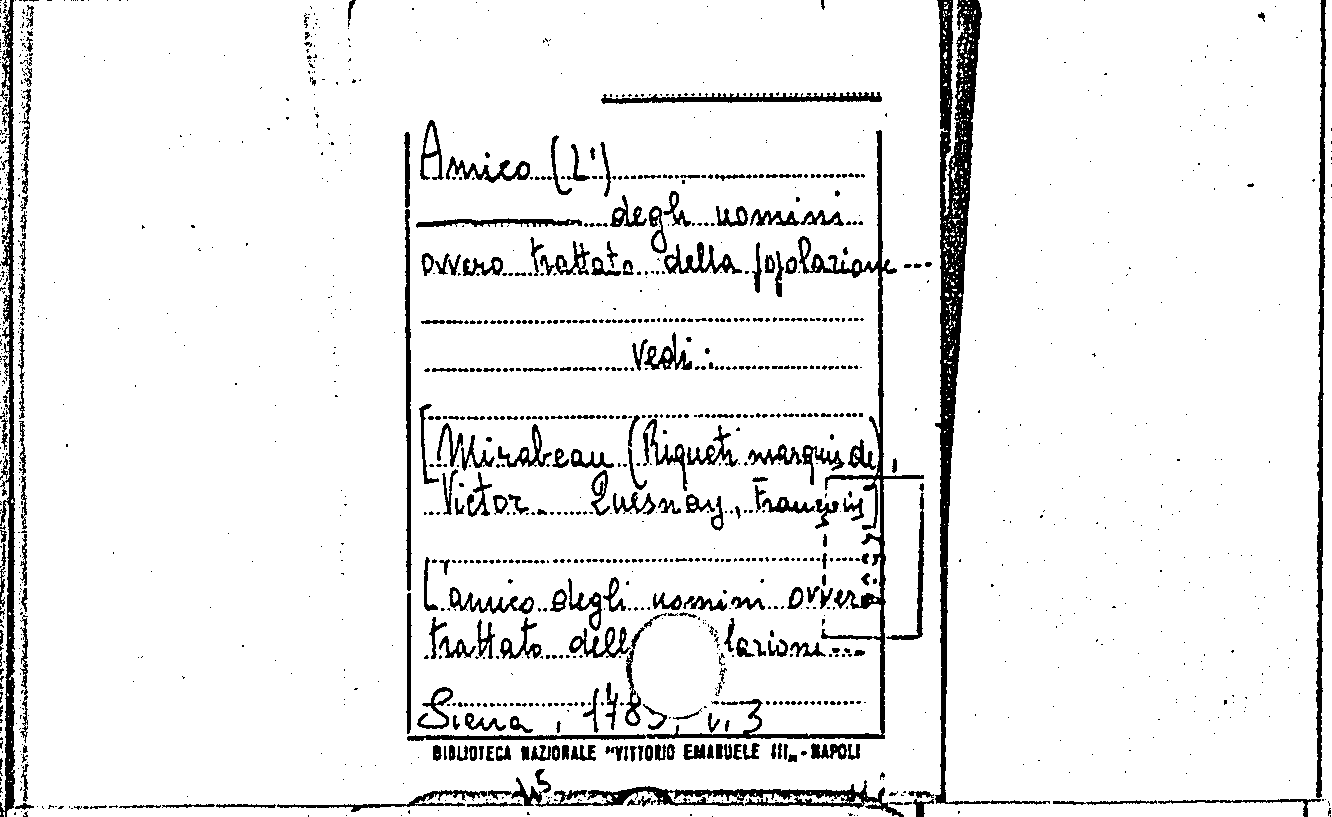 Amico (L')
degli uomini
ovvero trattato della popolazione ---
vedi:
[Mirabeau (Riqueti marquis de),
Victor. Quesnay, François]
L'amico degli uomini ovvero
trattato dell lazioni---
Siena, 178, v. 3
BIBLIOTECA NAZIONALE "VITTORIO EMANUELE III„ - NAPOLI